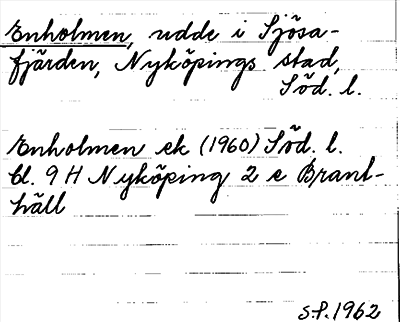 Enholmen, udde i Sjösa-
fjärden, Nyköpings stad,
Söd. l.
Enholmen ek (1960) Söd. l.
Bl. 9 H Nyköping 2 e Brant-
häll
S.P. 1962